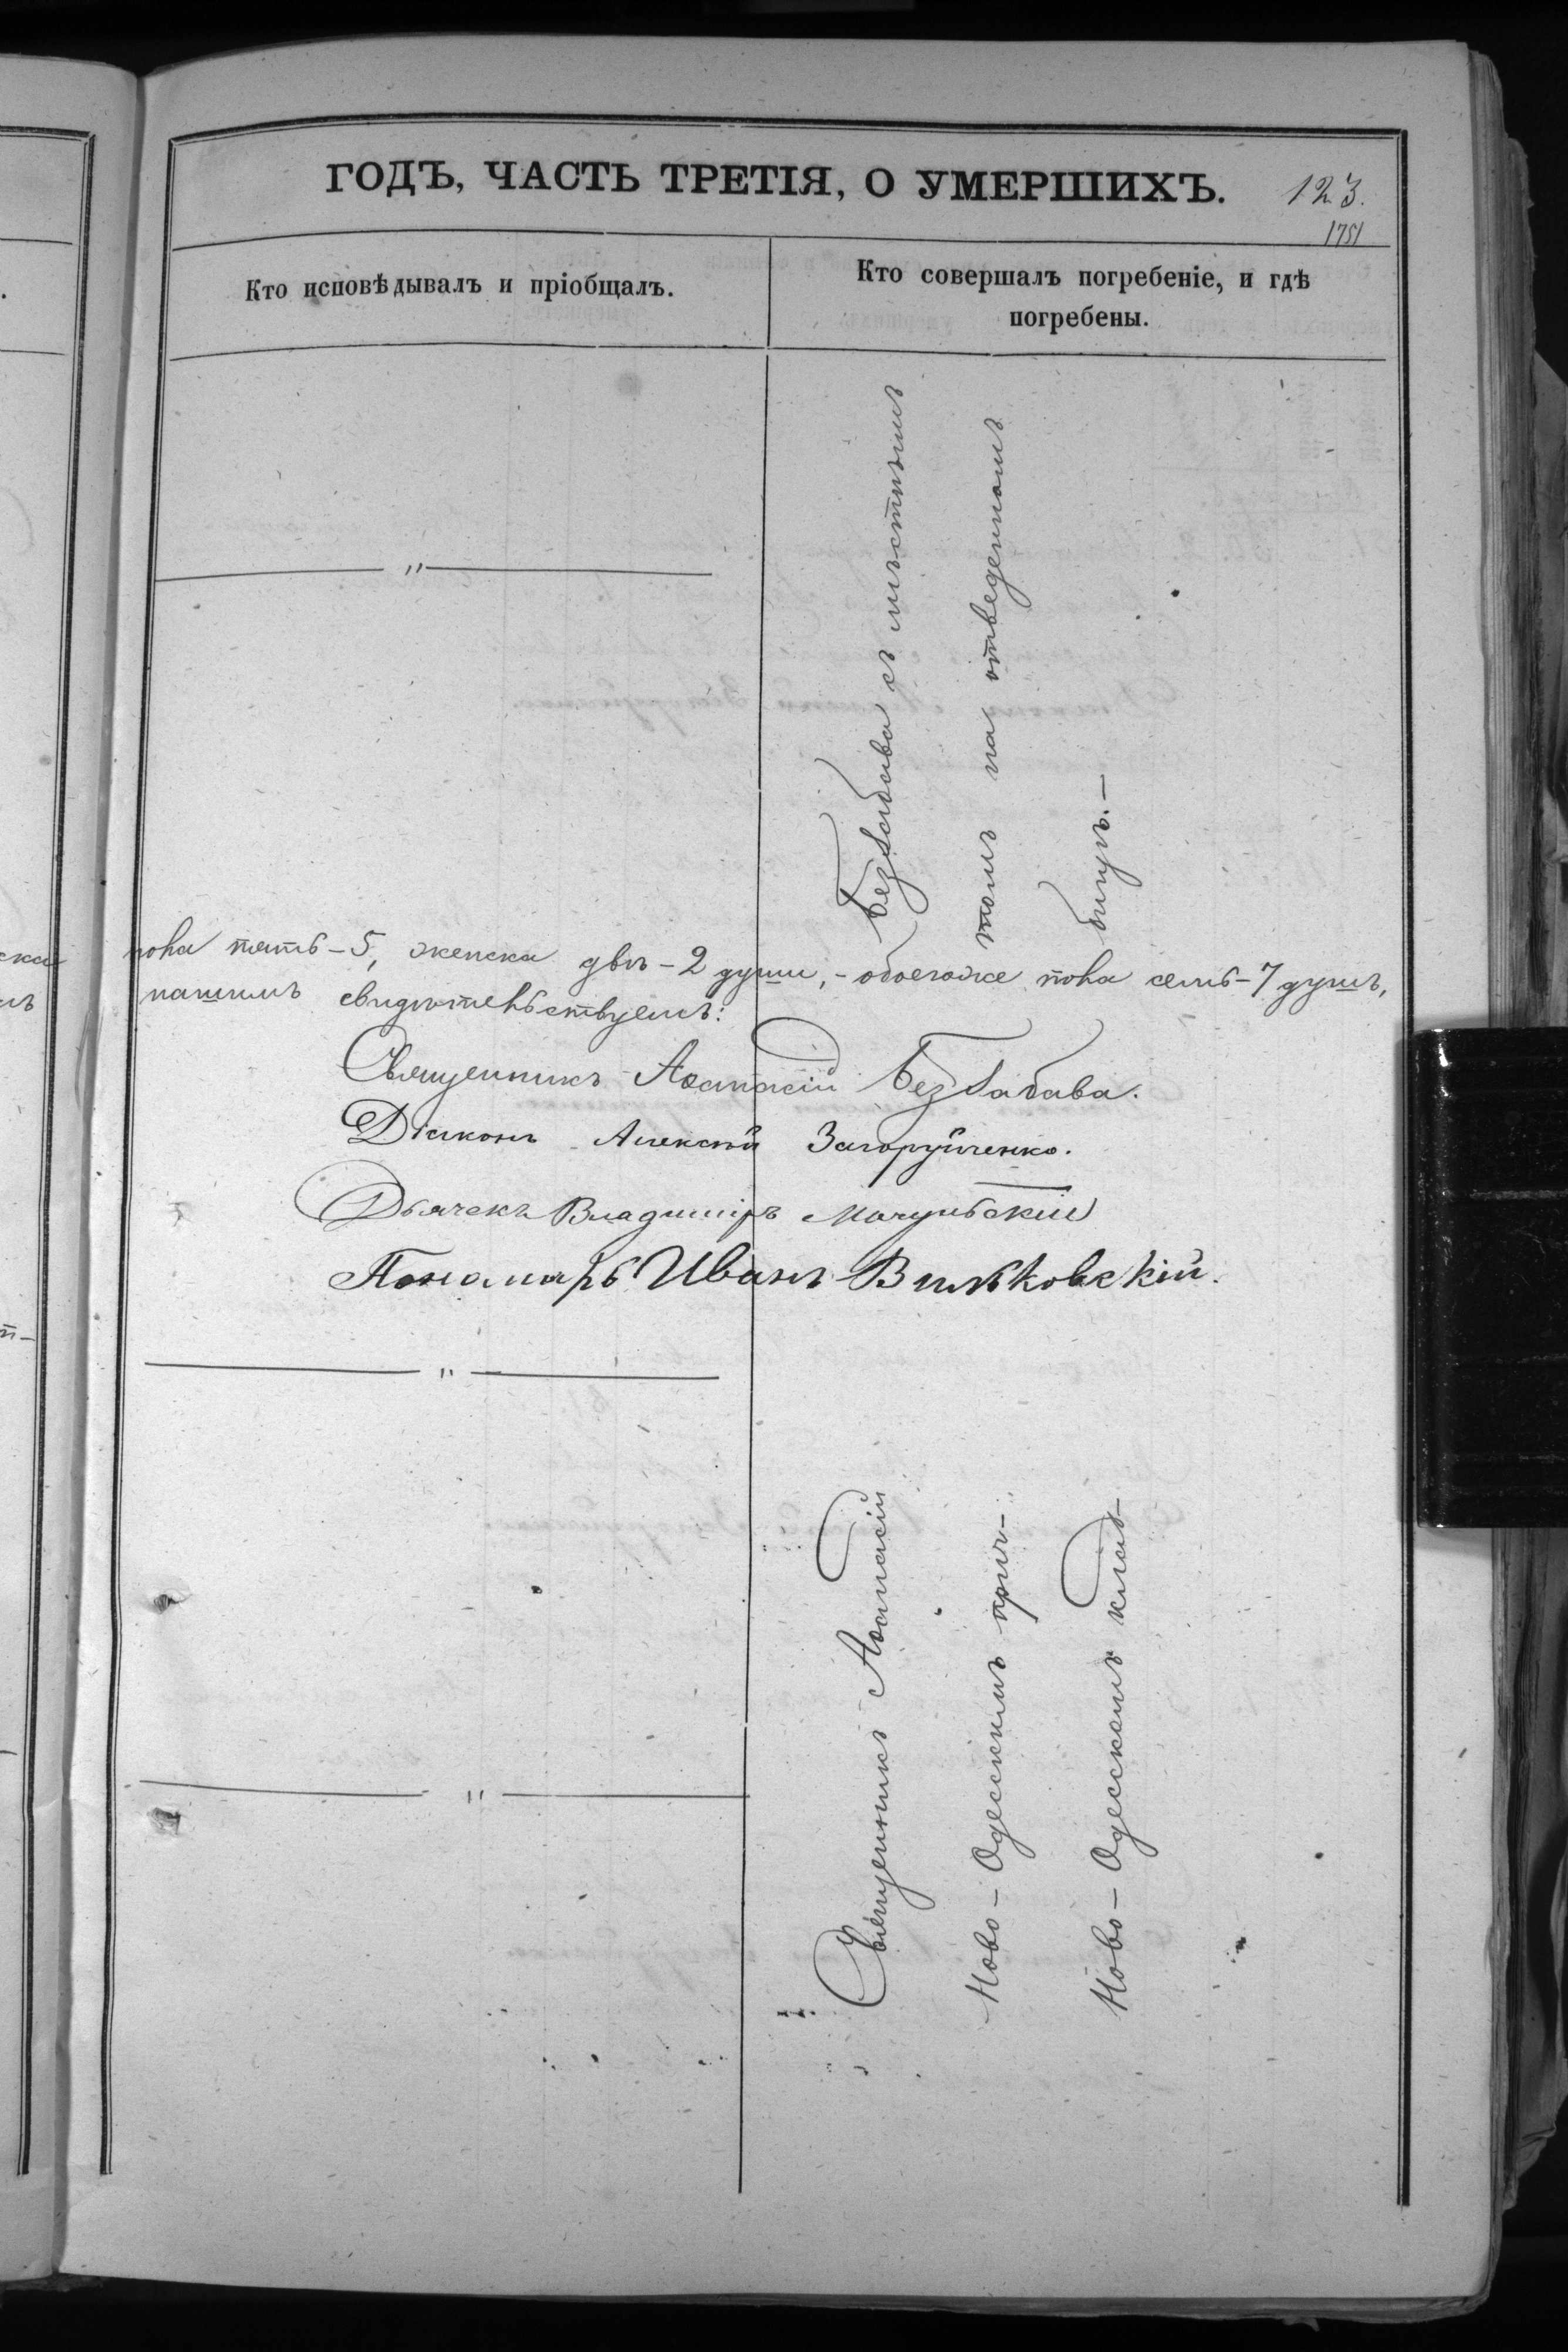 ГОДЪ, ЧАСТЬ ТРЕТІЯ, О УМЕРШИХЪ.
123.
1751
Кто исповѣдывалъ и пріобщалъ.
Кто совершалъ погребеніе, и гдѣ
погребены.
Беззабава съ мѣстнымъ
томъ на отведенномъ
бищѣ.—
пола пять-5, женска двѣ-2 души, - обоегоже пола семь-7 душъ,
нашимъ свидѣтельствуемъ:
Священникъ Аѳанасій Беззабава.
Діаконъ Алексѣй Загоруйченко.
Дьячекъ Владиміръ Мочульскій
Пономарь Иванъ Вилковскій.
Священникъ Аѳанасій
Ново-Одесскимъ прич-
Ново-Одесскомъ клад-